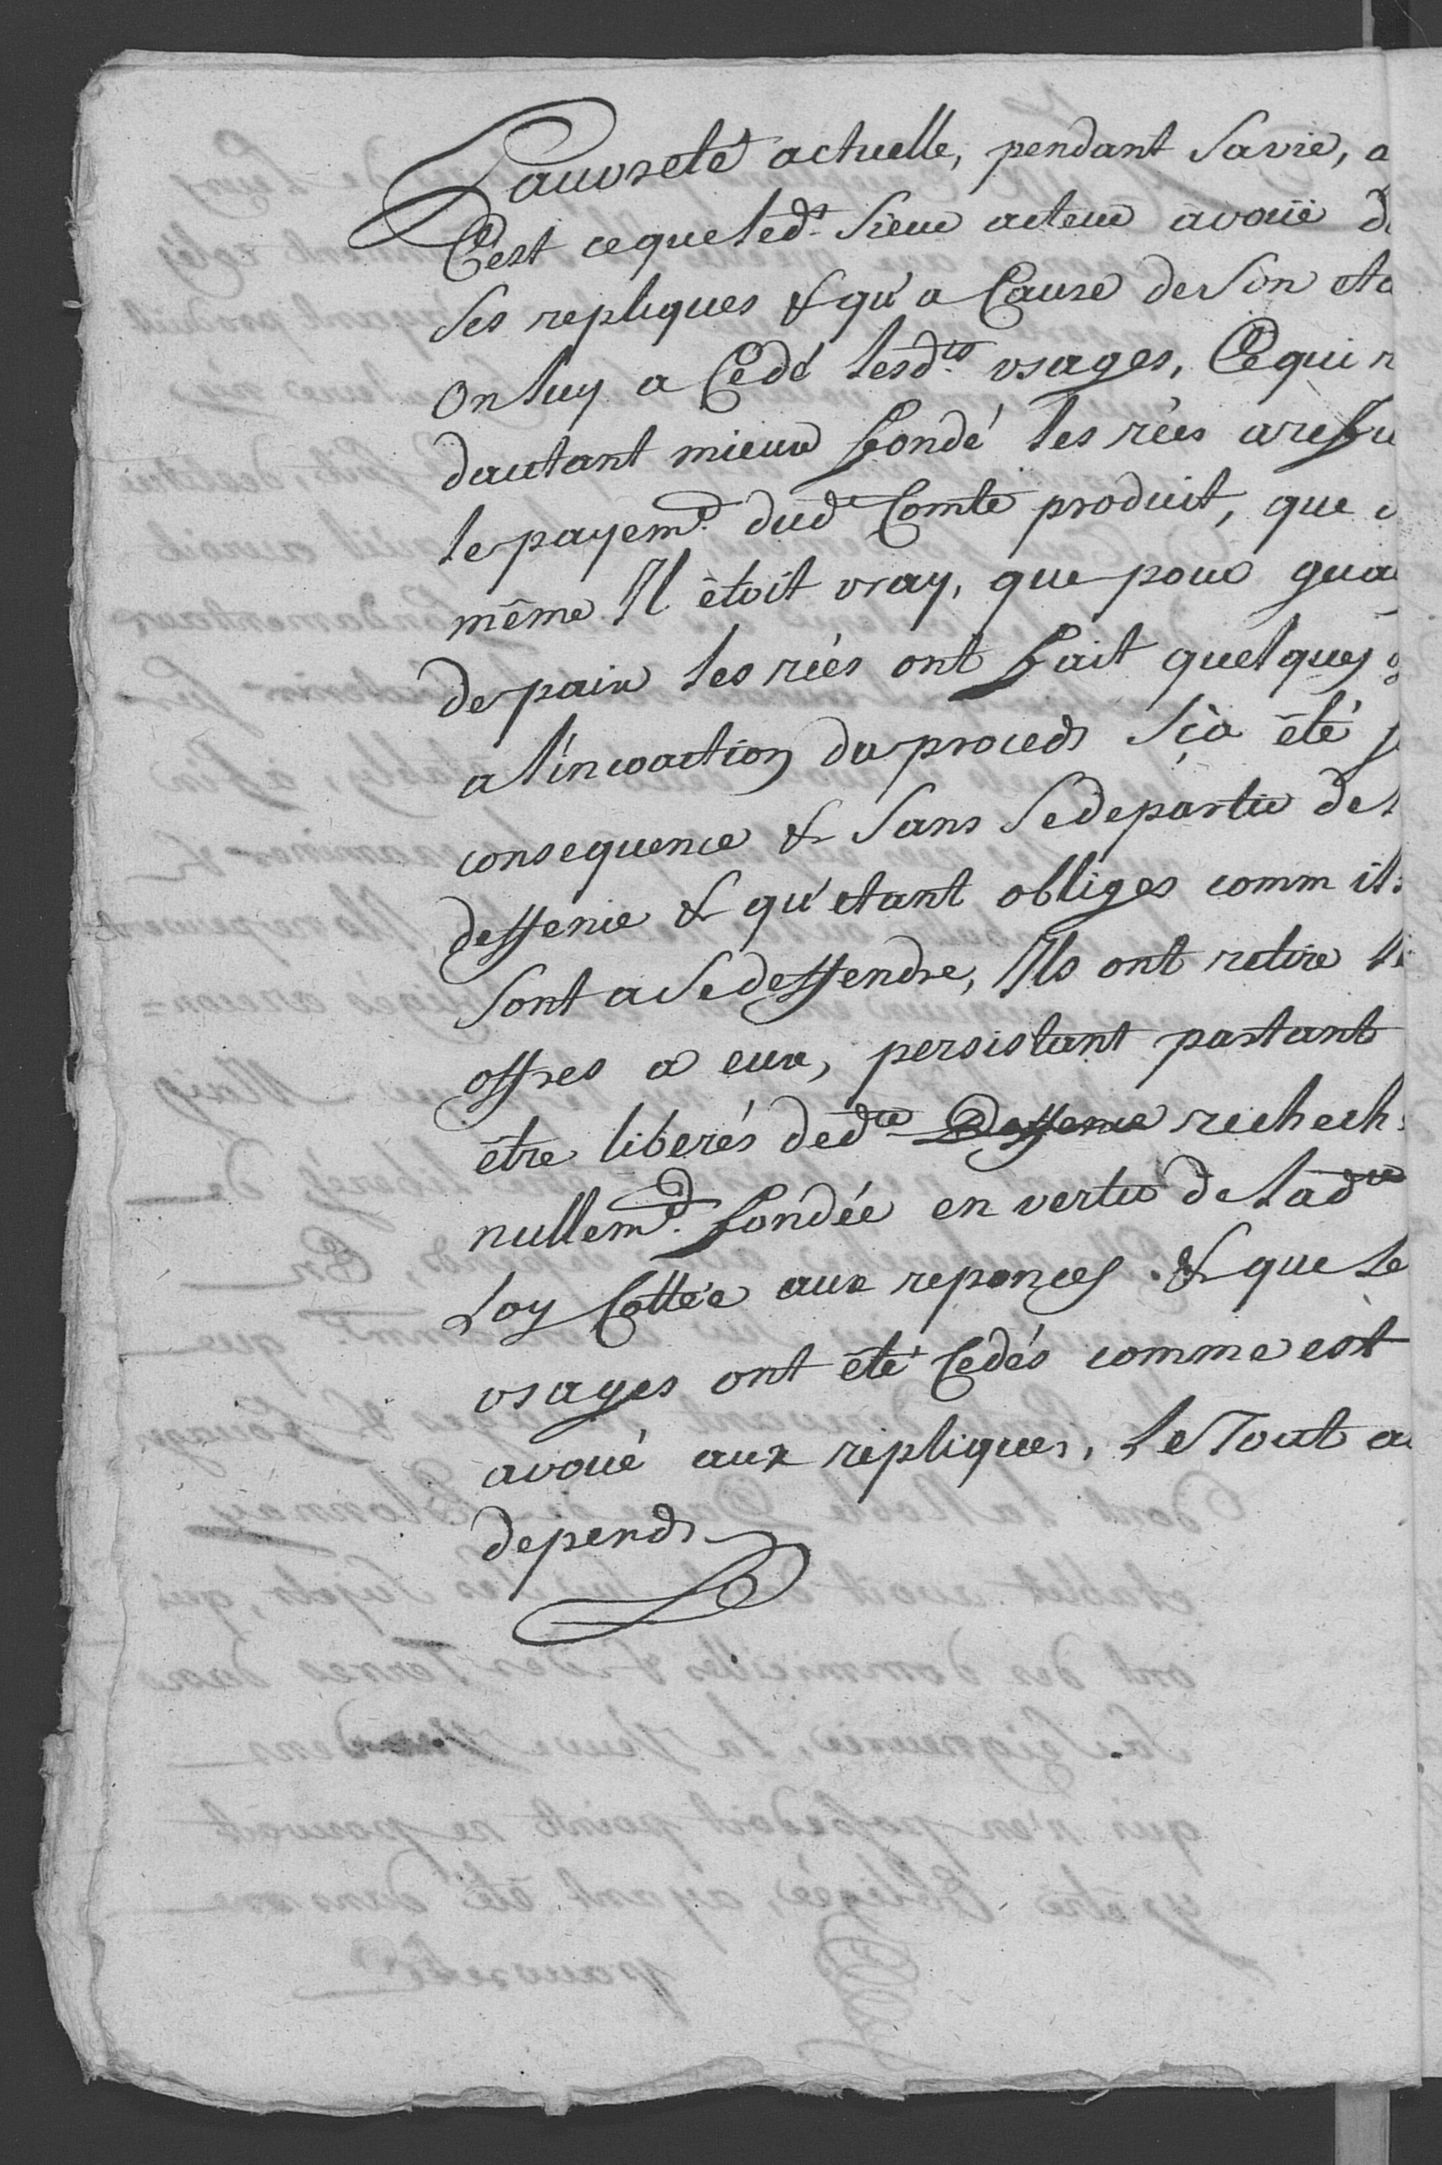 Pauvreté actuelle, pendant Sa vie, a
C'est ce que led.t Sieur acteur avoüe d
Ses repliques & qu'a Cause de Son eta
On luy a Cedé lesd.tes usages, Ce qui r
dautant mieux fondé les rées a refu
le payem.t dud.t Comte produit, que
même Il êtoit vray, que pour gua
de paix les rées ont fait quelques
a l'incoaction du proceds Sça êté
consequence & Sans Se departir de
deffence & qu'etant obliges comm ils
Sont a Se deffendre, Ils ont retire
offres a eux, persistant partant
être liberés de d.te Deffence rechech
nullem.t fondée en vertu de lad.te
Loy Cottée aux reponces. & que le
usages ont êté Cedés comme est
avoué aux repliques, Le Tout a
depends